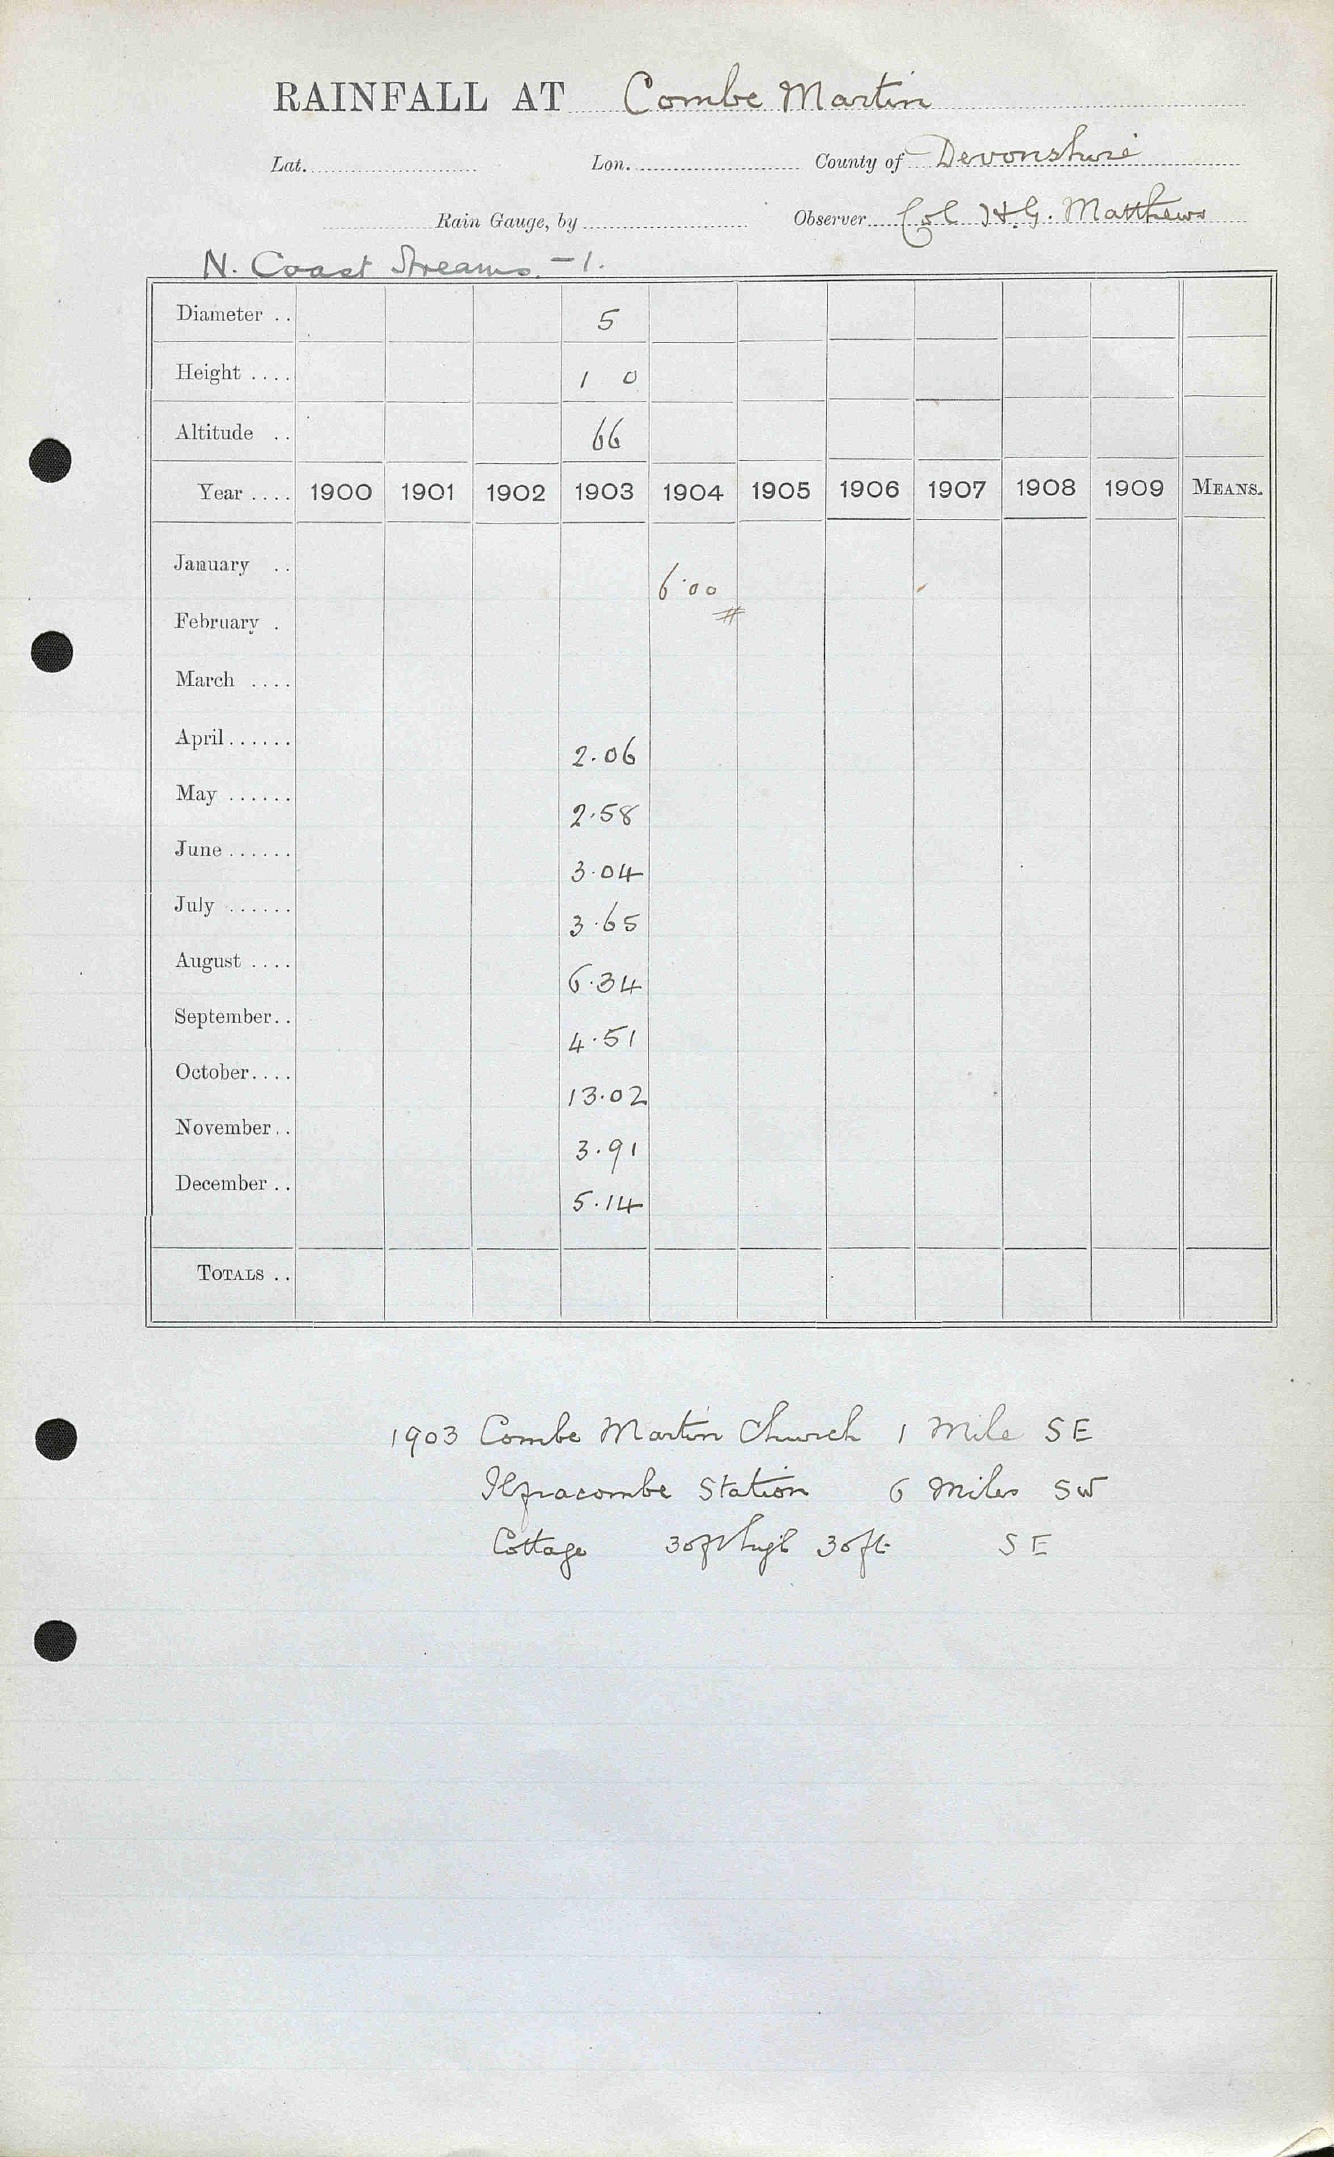 RAINFALL AT Combe Martin
Lat. Lon. County of Devonshire
Rain Gauge, by Observer Col H.G. Matthews
N. Coast Streams. -1.
Diameter .. 5
Height .... 1 0
Altitude .. 66
Year .... 1900 1901 1902 1903 1904 1905 1906 1907 1908 1909 MEANS.
January .. 6.00
#
February .
March ....
April...... 2.06
May ...... 2.58
June ...... 3.04
July ...... 3.65
August .... 6.34
September.. 4.51
October.... 13.02
November.. 3.91
December .. 5.14
TOTALS ..
1903 Combe Martin Church 1 Mile SE
Ilfracombe Station 6 Miles SW
Cottage 30ft high 30ft SE